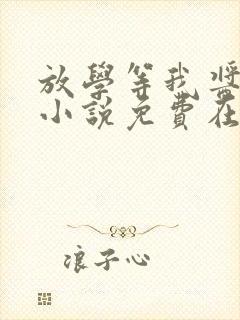 放學等我 將
小說免費在
浪子心